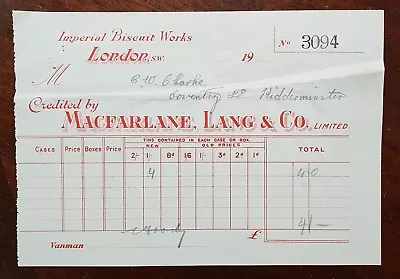 Imperial Biscuit Works
London, S.W. 19 No 3094
M C. W. Clarke
Coventry St Kidderminster
Credited by
MACFARLANE, LANG & CO. LIMITED.
CASES Price BOXES Price TINS CONTAINED IN EACH CASE OR BOX. TOTAL
NEW OLD PRICES
2/- 1/- 8d 16 1/- 3d 2d 1d
4 4/0
Vanman £ 4/-